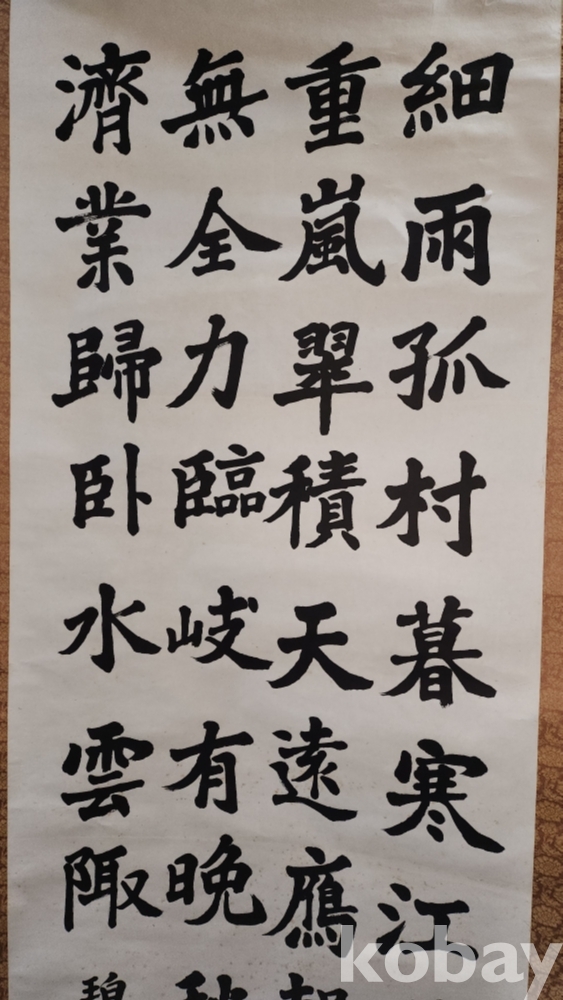 細雨孤村暮寒江
重嵐翠積天遠鴈
無全力臨岐有晩秋
濟業歸卧水雲陬
碧
kobay